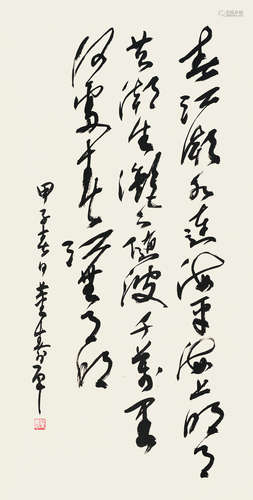 春江潮水连海平海上明月
共潮生滟滟随波千万里
何处春江无月明
甲子春日董寿平